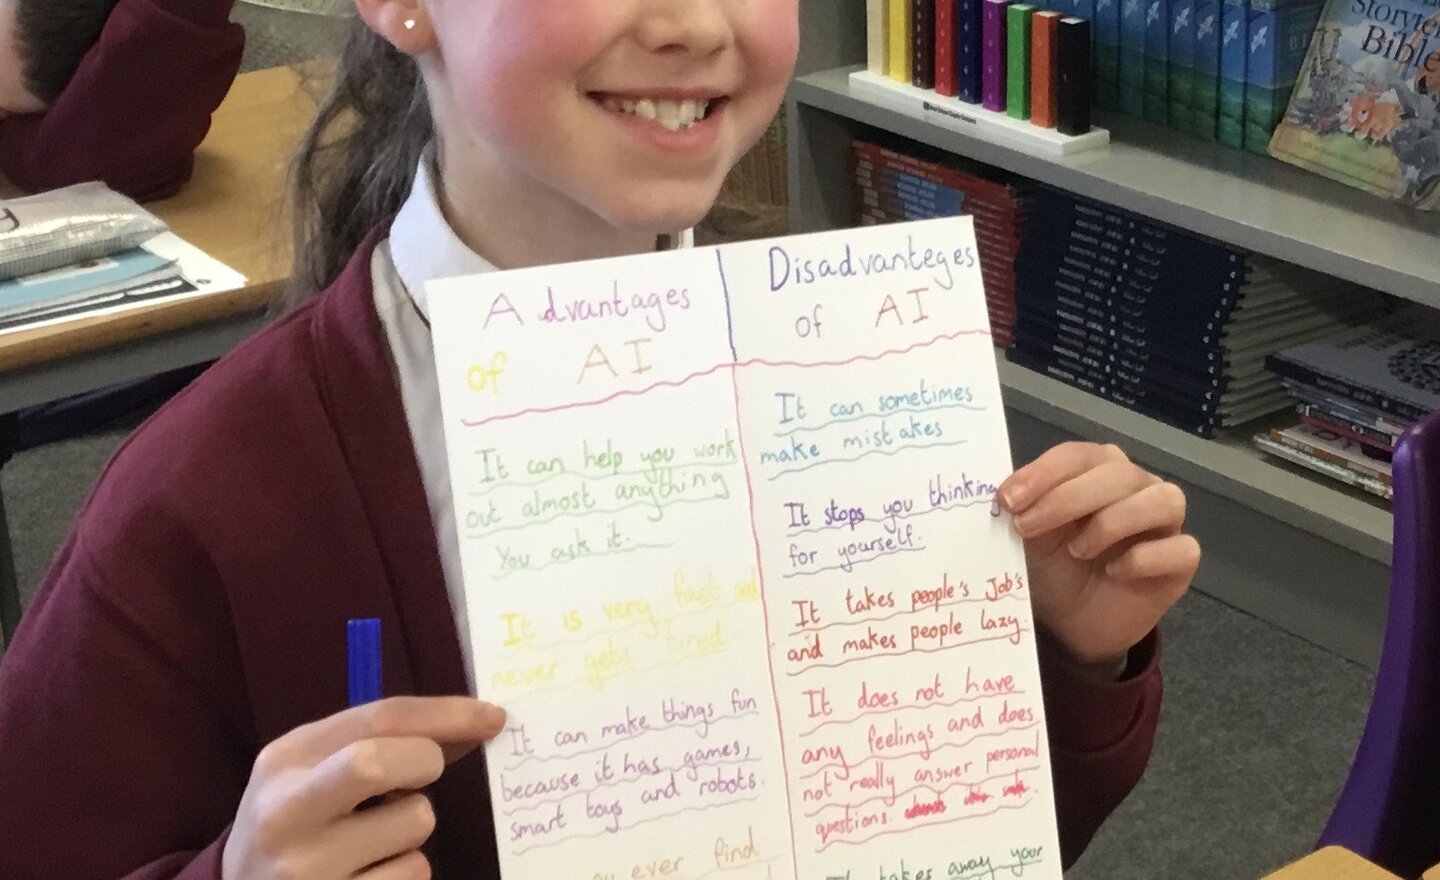 Advantages
of AI
It can help you work
out almost anything
You ask it.
It is very fast and
never gets tired.
It can make things fun
because it has games,
smart toys and robots.
ever find
Disadvanteges
of AI
It can sometimes
make mistakes
It stops you thinking
for yourself.
It takes people's Job's
and makes people lazy.
It does not have
any feelings and does
not really answer personal
questions
takes away your
Bible